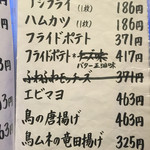 アジフライ(1枚) 186円
ハムカツ(1枚) 186円
フライドポテト 371円
フライドポテト チーズ味 417円
バター正油味
ふわふわモッチーズ 371円
エビマヨ 463円
鳥の唐揚げ 463円
鳥ムネの竜田揚げ 325円